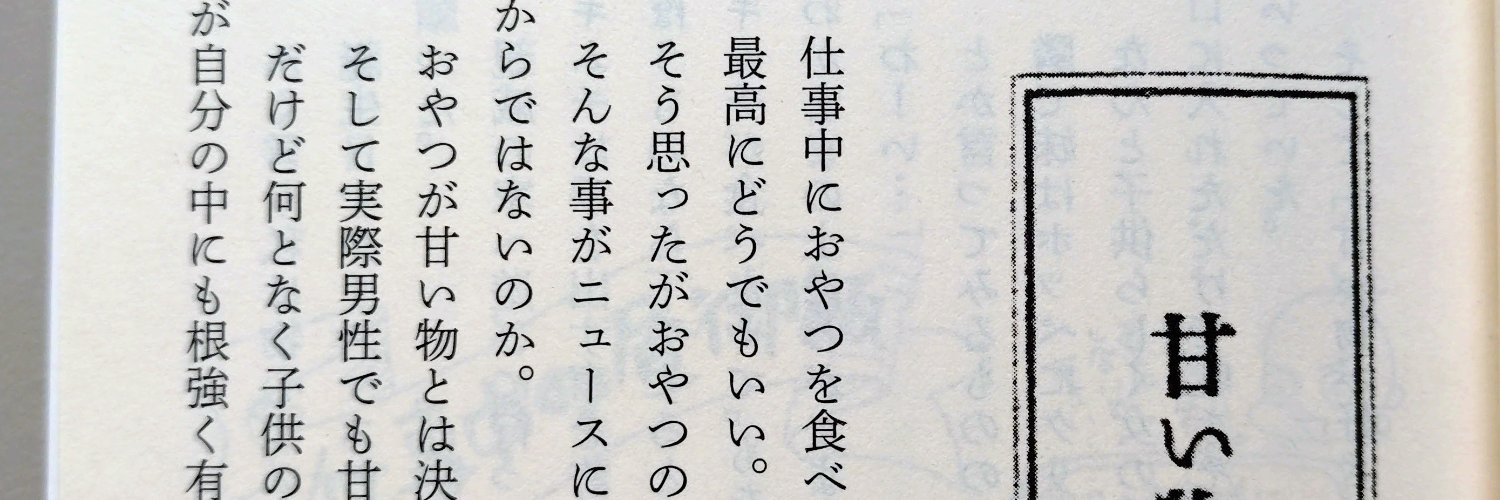 甘い
仕事中におやつを食べ
最高にどうでもいい。
そう思ったがおやつの
そんな事がニュースに
からではないのか。
おやつが甘い物とは決
そして実際男性でも甘
だけど何となく子供の
が自分の中にも根強く有